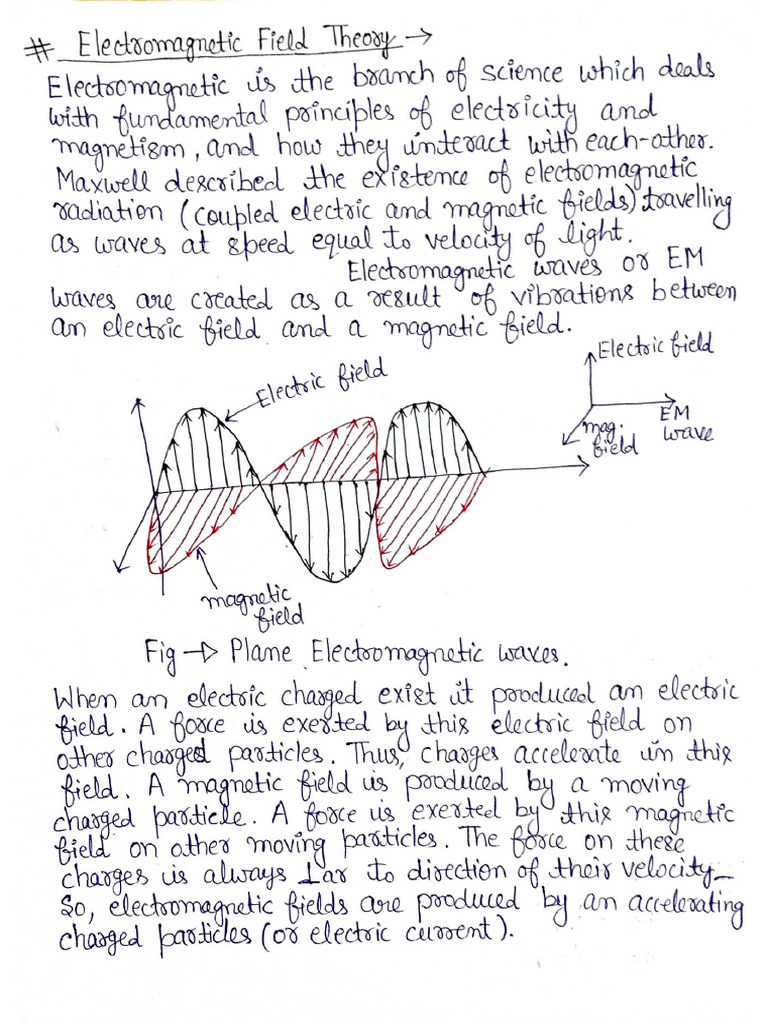 # Electromagnetic Field Theory →
Electromagnetic is the branch of science which deals
with fundamental principles of electricity and
magnetism, and how they interact with each-other.
Maxwell described the existence of electromagnetic
radiation (coupled electric and magnetic fields) travelling
as waves at speed equal to velocity of light.
Electromagnetic waves or EM
waves are created as a result of vibrations between
an electric field and a magnetic field.
Electric field
Electric field
EM
wave
mag.
field
magnetic
field
Fig → Plane Electromagnetic waves.
When an electric charged exist it produced an electric
field. A force is exerted by this electric field on
other charged particles. Thus, charges accelerate in this
field. A magnetic field is produced by a moving
charged particle. A force is exerted by this magnetic
field on other moving particles. The force on these
charges is always ⊥ar to direction of their velocity_
So, electromagnetic fields are produced by an accelerating
charged particles (or electric current).